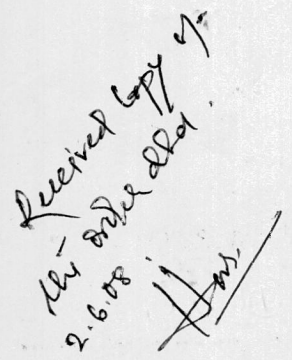 Received copy of
this order dtd.
2.6.08